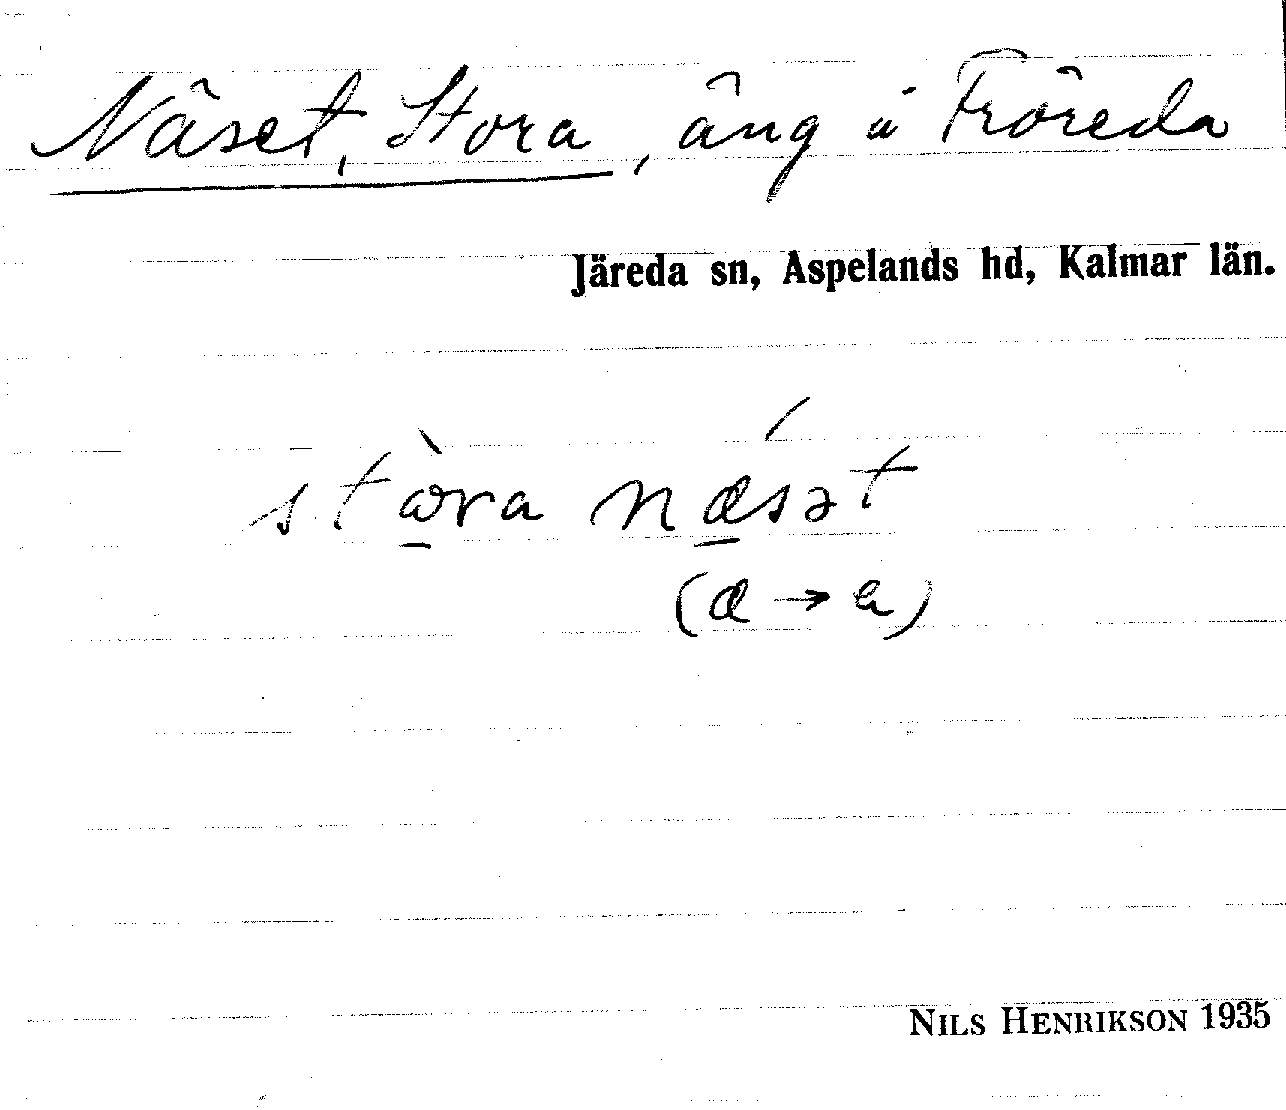 Näset, Stora, äng å Fröreda
Järeda sn, Aspelands hd, Kalmar län.
stɷ̠̀ra nǽ̠sət
(æ → a)
NILS HENRIKSON 1935